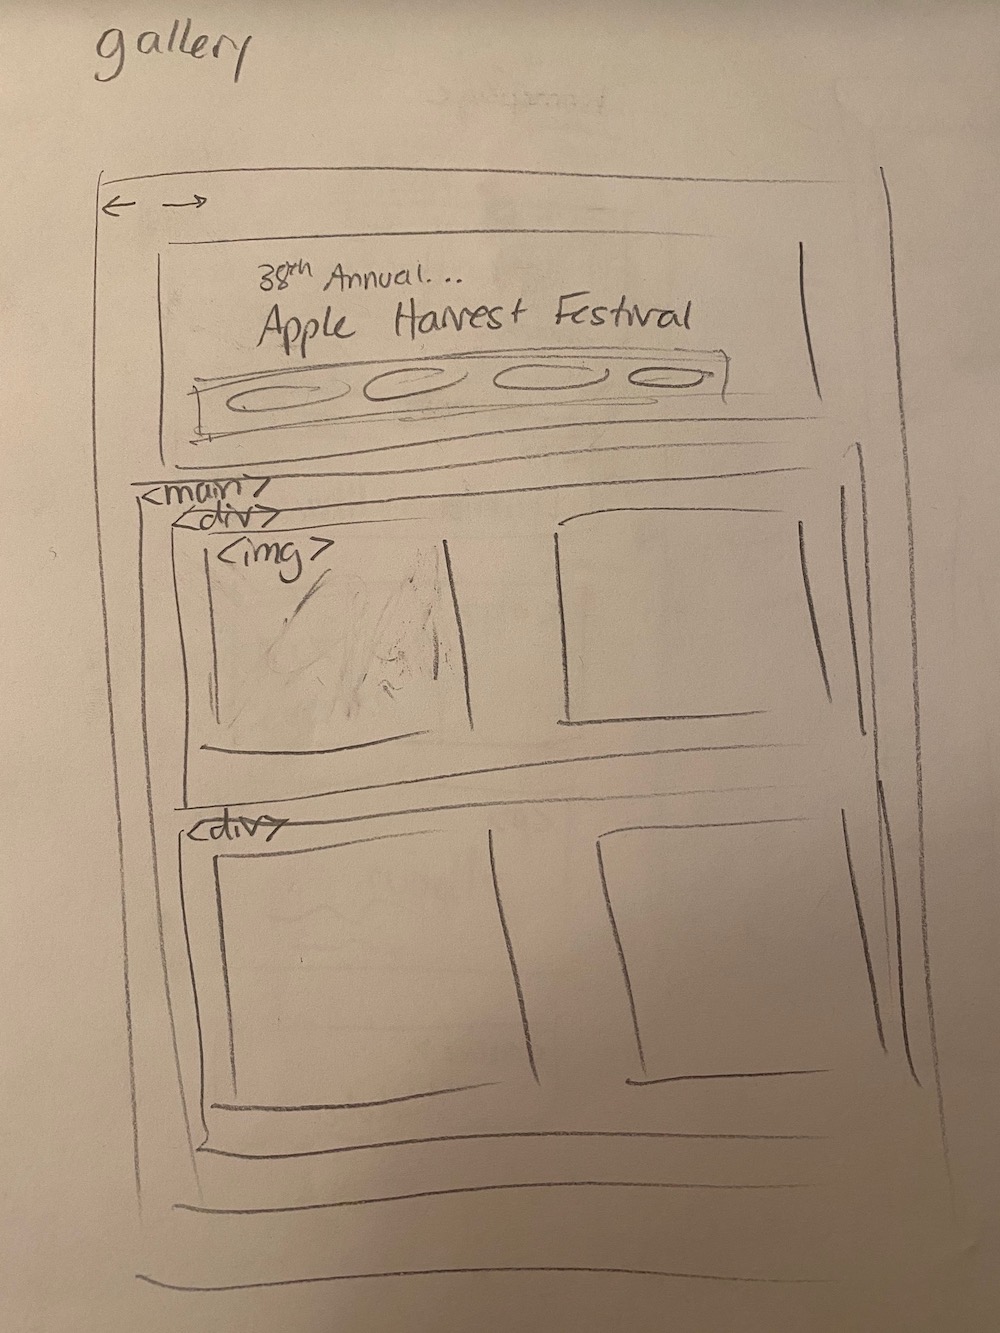 gallery
38th Annual...
Apple Harvest Festival
<main>
<div>
<img>
<div>